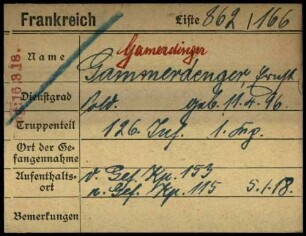 Frankreich Liste 862/166
Gamerdinger
Name Gammerdenger, Ernst
Dienstgrad Sold. geb. 11.4.96.
Truppenteil 126. Inf. 1. Kg.
Ort der Ge-
fangennahme
Aufenthalts-
ort
v. Gef. Kp. 153
n. Gef. Kp. 115 5.1.18.
Bemerkungen
16.3.18.